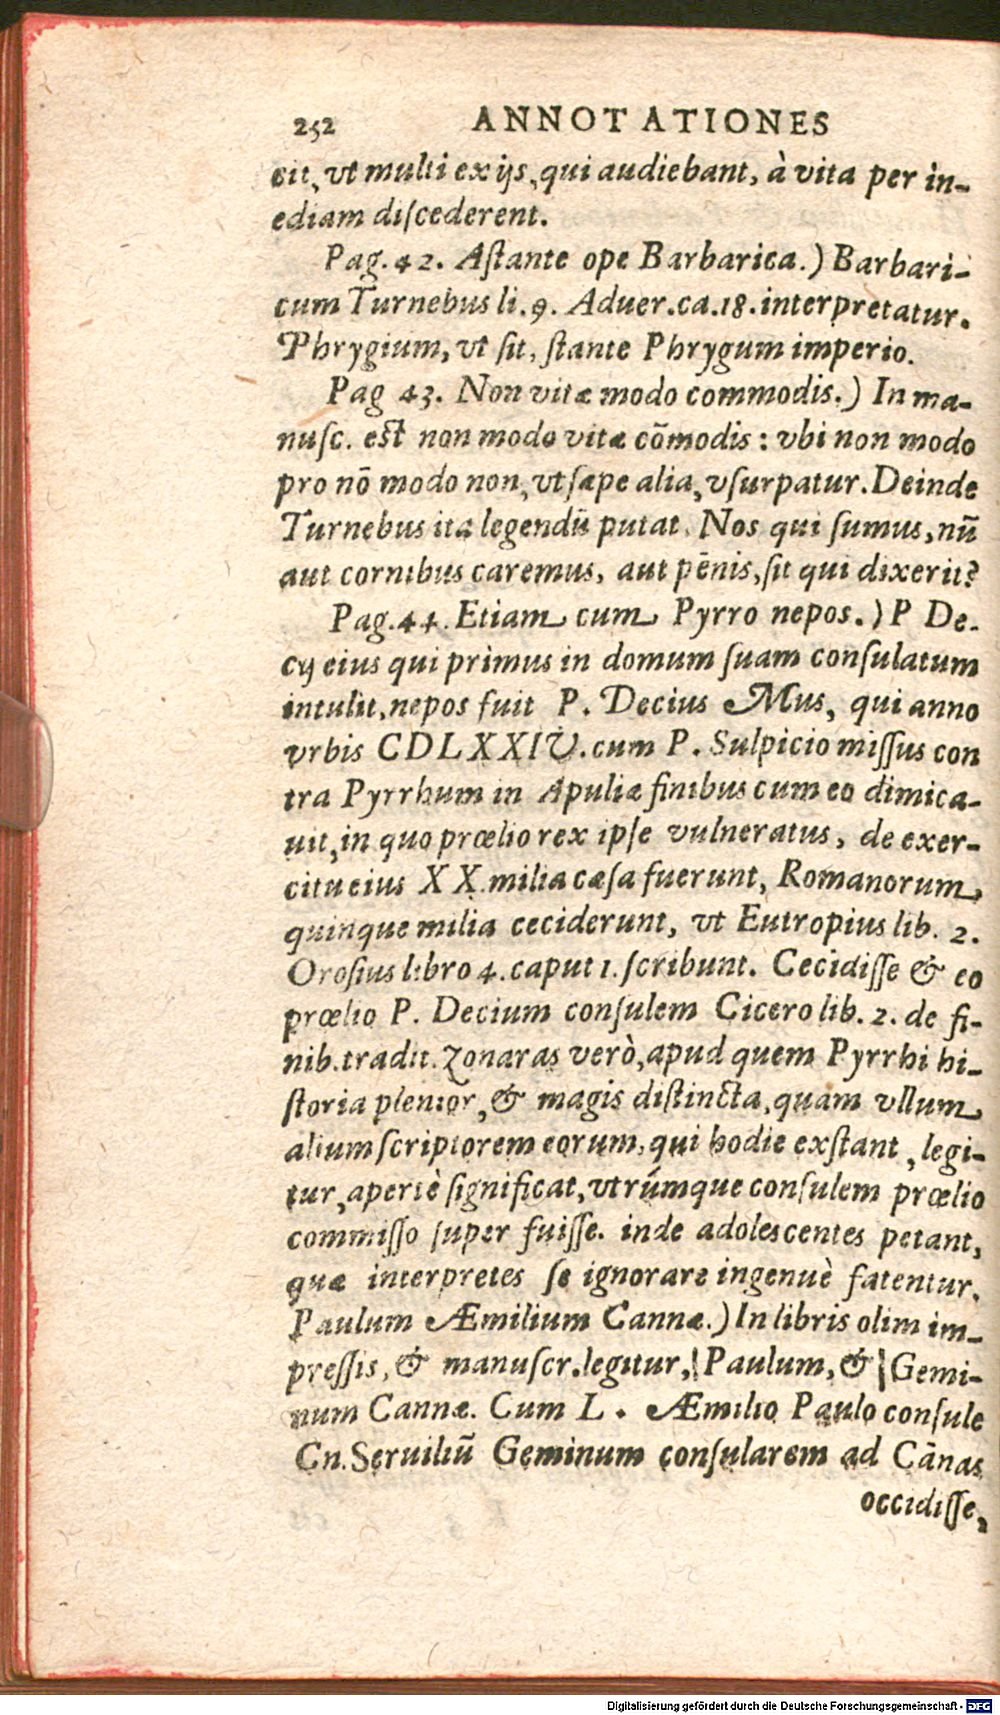 252 ANNOTATIONES
cit, vt multi ex ijs, qui audiebant, à vita per in-
ediam diſcederent.
Pag. 42. Aſtante ope Barbarica.) Barbari-
cum Turnebus li. 9. Aduer. ca. 18. interpretatur.
Phrygium, vt ſit, ſtante Phrygum imperio.
Pag 43. Non vitæ modo commodis.) In ma-
nuſc. eſt non modo vitæ cōmodis: vbi non modo
pro nō modo non, vt ſæpe alia, vſurpatur. Deinde
Turnebus ita legendū putat. Nos qui ſumus, nū
aut cornibus caremus, aut pēnis, ſit qui dixerit?
Pag. 44. Etiam cum Pyrro nepos.) P De-
cij eius qui primus in domum ſuam conſulatum
intulit, nepos fuit P. Decius Mus, qui anno
vrbis CDLXXIV. cum P. Sulpicio miſſus con
tra Pyrrhum in Apuliæ finibus cum eo dimica-
uit, in quo prœlio rex ipſe vulneratus, de exer-
citu eius XX. milia cæſa fuerunt, Romanorum
quinque milia ceciderunt, vt Eutropius lib. 2.
Oroſius libro 4. caput 1. ſcribunt. Cecidiſſe & eo
prœlio P. Decium conſulem Cicero lib. 2. de fi-
nib. tradit. Zonaras verò, apud quem Pyrrhi hi-
ſtoria plenior, & magis diſtincta, quam vllum
alium ſcriptorem eorum, qui hodie exſtant, legi-
tur, apertè ſignificat, vtrúmque conſulem prœlio
commiſſo ſuper fuiſſe. inde adoleſcentes petant,
quæ interpretes ſe ignorare ingenuè fatentur.
Paulum Æmilium Cannæ.) In libris olim im-
preſſis, & manuſcr. legitur, | Paulum, & | Gemi-
num Cannæ. Cum L. Æmilio Paulo conſule
Cn. Seruiliū Geminum conſularem ad Cānas
occidiſſe,
Digitalisierung gefördert durch die Deutsche Forschungsgemeinschaft - DFG